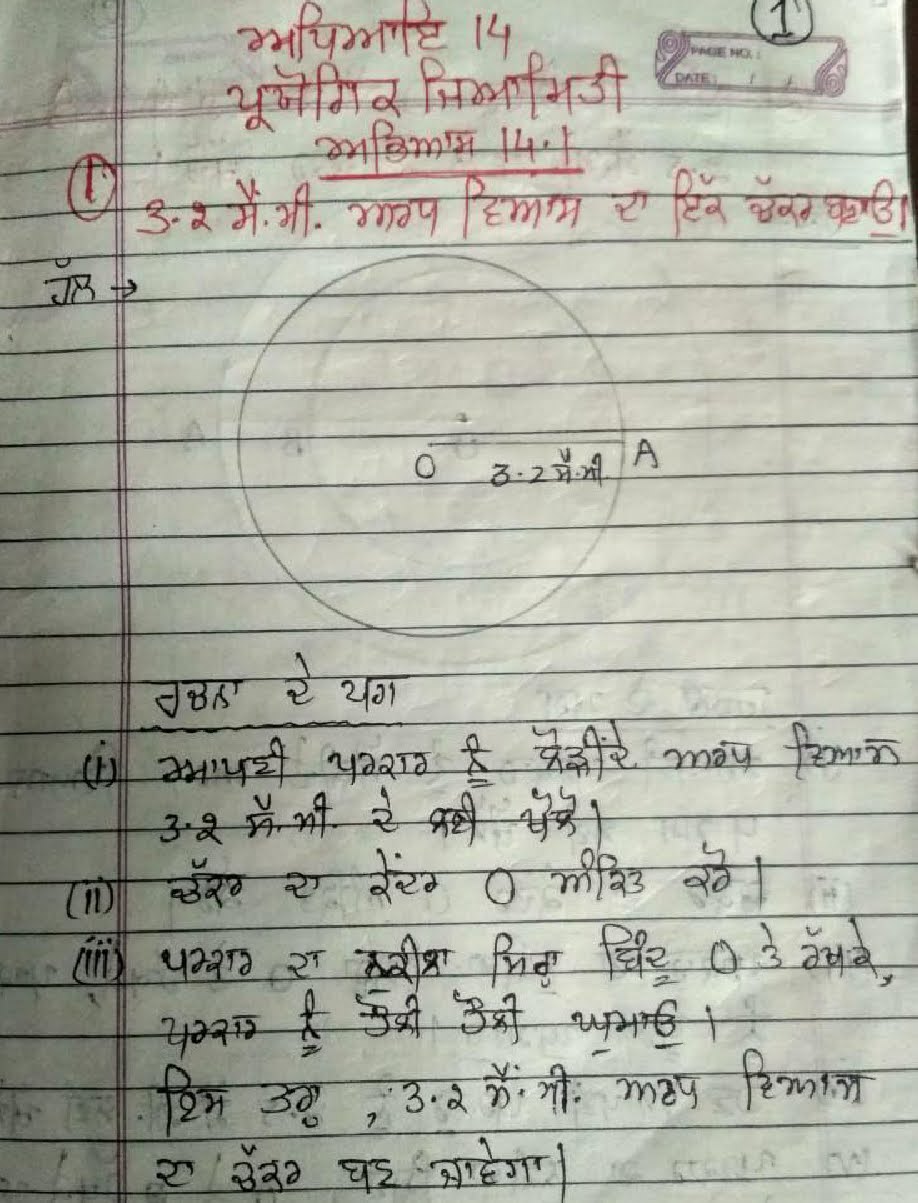 1
ਅਧਿਆਇ 14
PAGE NO.:
DATE: / /
ਪ੍ਰਯੋਗਿਕ ਜਿਆਮਿਤੀ
ਅਭਿਆਸ 14.1
1. ੩.੨ ਸੈਂ.ਮੀ. ਅਰਧ ਵਿਆਸ ਦਾ ਇੱਕ ਚੱਕਰ ਬਣਾਉ।
ਹੱਲ →
O 3.2 ਸੈਂ.ਮੀ. A
ਰਚਨਾ ਦੇ ਪਗ
(i) ਆਪਣੀ ਪਰਕਾਰ ਨੂੰ ਲੋੜੀਂਦੇ ਅਰਧ ਵਿਆਸ
੩.੨ ਸੈਂ.ਮੀ. ਦੇ ਲਈ ਖੋਲੋ।
(ii) ਚੱਕਰ ਦਾ ਕੇਂਦਰ O ਅੰਕਿਤ ਕਰੋ।
(iii) ਪਰਕਾਰ ਦਾ ਨੁਕੀਲਾ ਸਿਰਾ ਬਿੰਦੂ O ਤੇ ਰੱਖਕੇ,
ਪਰਕਾਰ ਨੂੰ ਹੌਲੀ ਹੌਲੀ ਘੁਮਾਉ।
ਇਸ ਤਰ੍ਹਾਂ, ੩.੨ ਸੈਂ.ਮੀ. ਅਰਧ ਵਿਆਸ
ਦਾ ਚੱਕਰ ਬਣ ਜਾਵੇਗਾ।